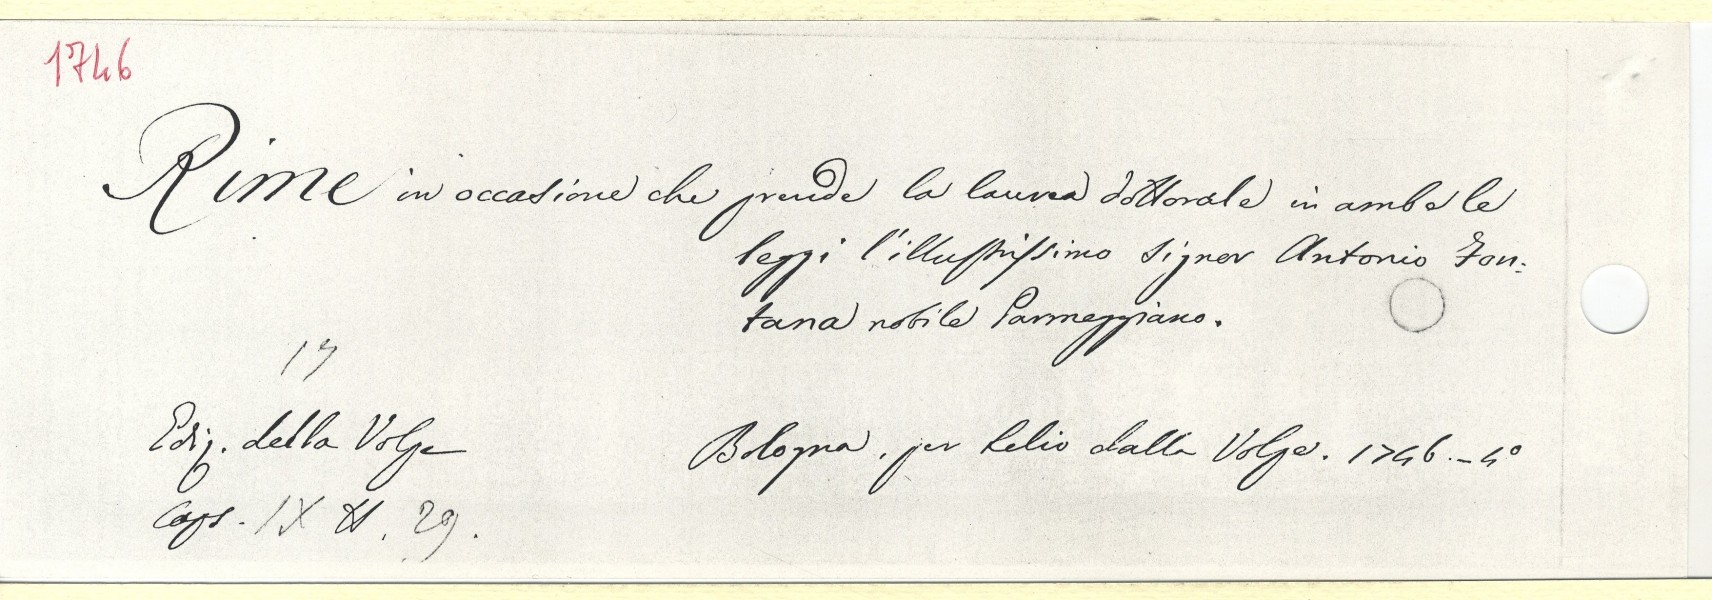 1746
Rime in occasione che prende la laurea dottorale in ambe le
leggi l'illustrissimo signor Antonio Fon:
tana nobile Parmeggiano.
17
Ediz. della Volpe
Bologna, per Lelio dalla Volpe. 1746. - 4º
Caps. IX N. 29.